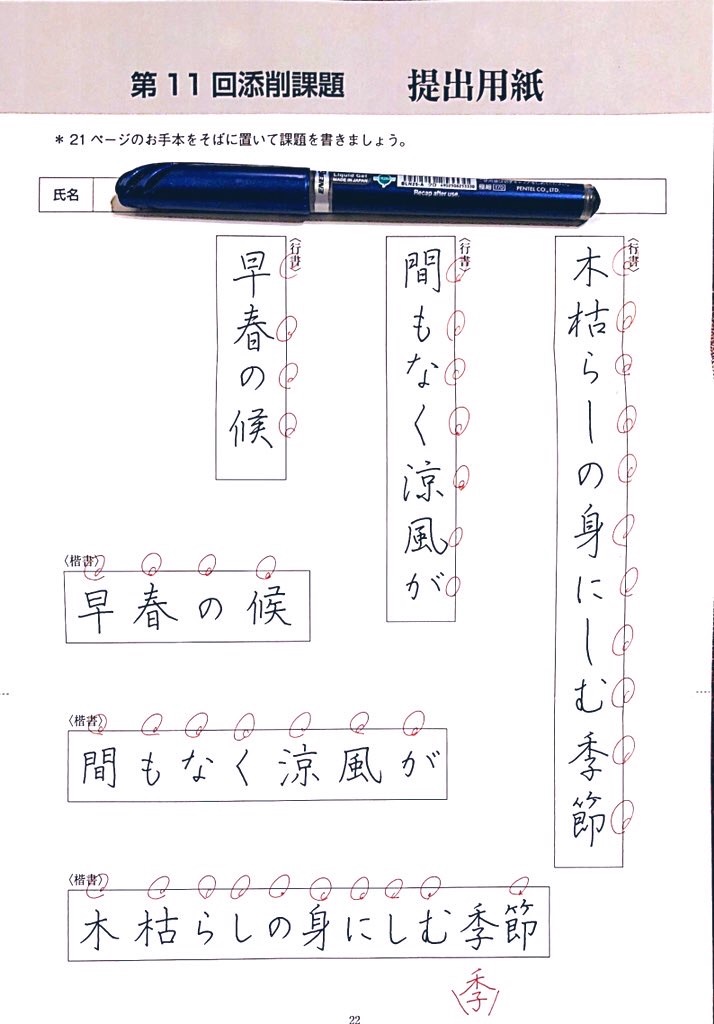 第11回添削課題 提出用紙
＊21ページのお手本をそばに置いて課題を書きましょう。
氏名
Liquid Gel
MADE IN JAPAN
BLN25-A
PENTEL CO., LTD.
Recap after use.
〈行書〉
木枯らしの身にしむ季節
〈行書〉
間もなく涼風が
〈行書〉
早春の候
〈楷書〉
早春の候
〈楷書〉
間もなく涼風が
〈楷書〉
木枯らしの身にしむ季節
(季)
22